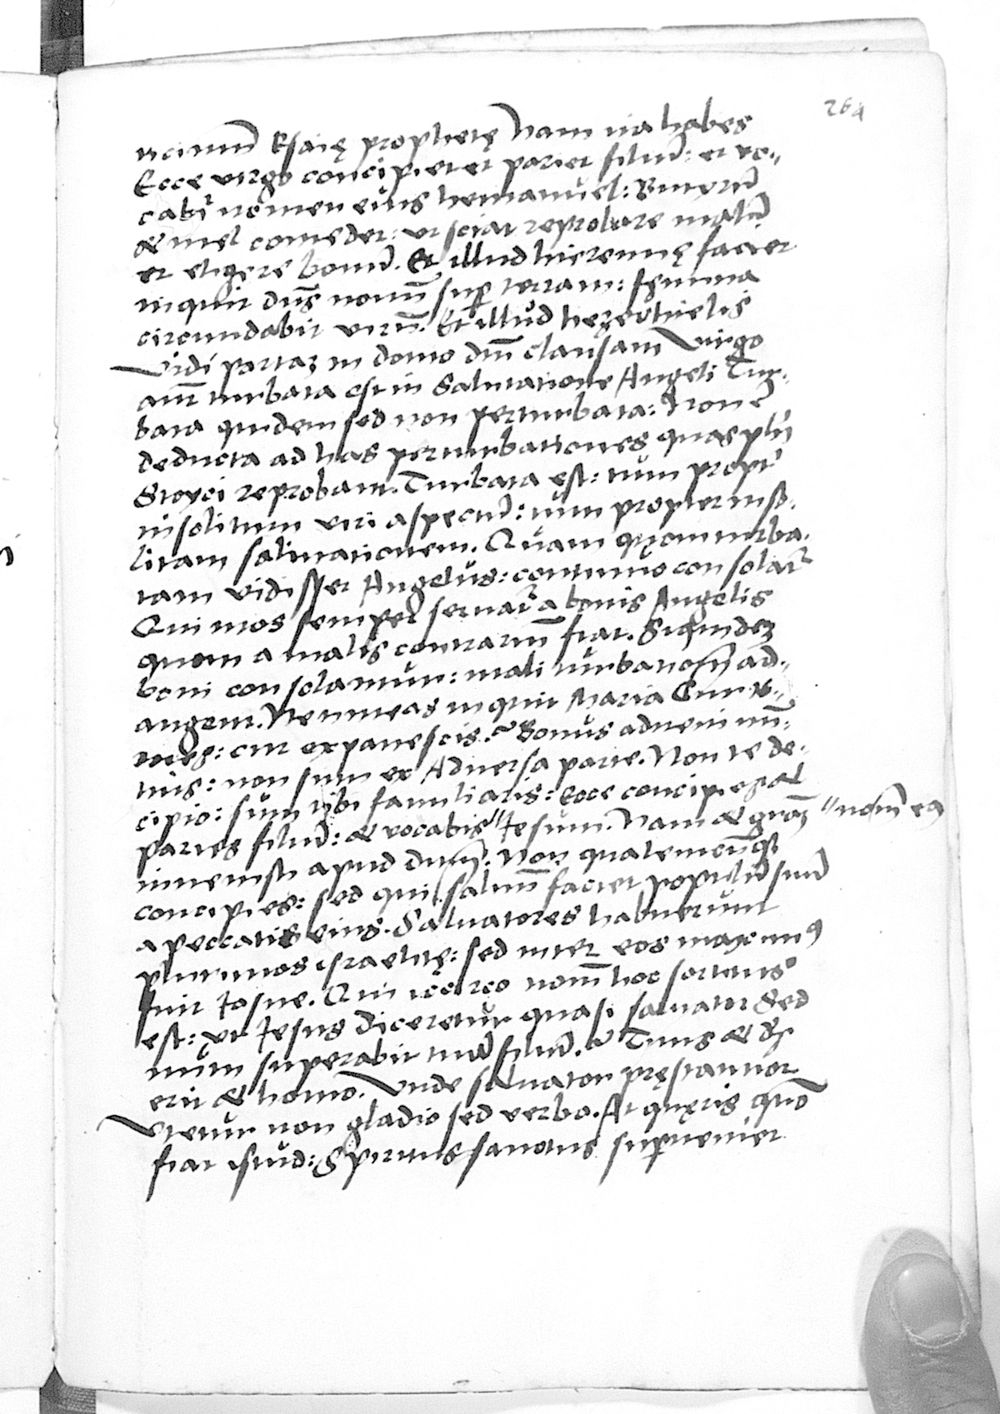 264
ticinium Esaię prophetę Nam ita habes
Ecce virgo concipiet et pariet filiū: et vo-
cabit nomen eius hemanuel: Butyrū
& mel comedet: ut sciat reprobare malū
et eligere bonū. Et illud hieremię faciet
inquit dn̄s novū sup̄ terram: fęmina
circundabit virū. Et illud hezechielis
Vidi portaʒ in domo dn̄i clausam Virgo
aut̄ turbata est in Salutatione Angeli Tur-
bata quidem sed non perturbata: Non ē
deducta ad has perturbationes quas phi
Stoyci reprobant. Turbata est: tum propt̄
insolitum viri aspectū: tum propter inso-
litam salutationem. Quam quom turba-
tam vidisset Angelus: continuo consolat̄
Qui mos semper servat̄ a bonis Angelis
quom a malis contrariū fiat. Siquideʒ
boni consolantur: mali turbationē ad-
augent. Ne timeas inquit Maria Cur ti-
mes: cur expavescis? Bonus adveni nū-
tius: non sum ex Adversa parte. Non te de-
cipio: sum tibi familiaris: Ecce concipies &
paries filiū: & vocabis " Jesum. Nam & grāʒ
" nomē eꝗ
invenisti apud dn̄m. Non qualemcūqꝫ
concipies: sed qui salvū faciet populū suū
a peccatis eius. Salvatores habuerunt
plurimos israelitę: sed inter eos maximꝰ
fuit Josue. Qui iccirco nom̄ hoc sortitus
est: ut Jesus diceretur quasi salvator Sed
num superabit tuū filiū? Tuus & ds̄
erit & homo. Unde salvator pręstantior
Utetur non gladio sed verbo. At quęris quō
fiat istud: Spiritus sanctus sup̄veniet